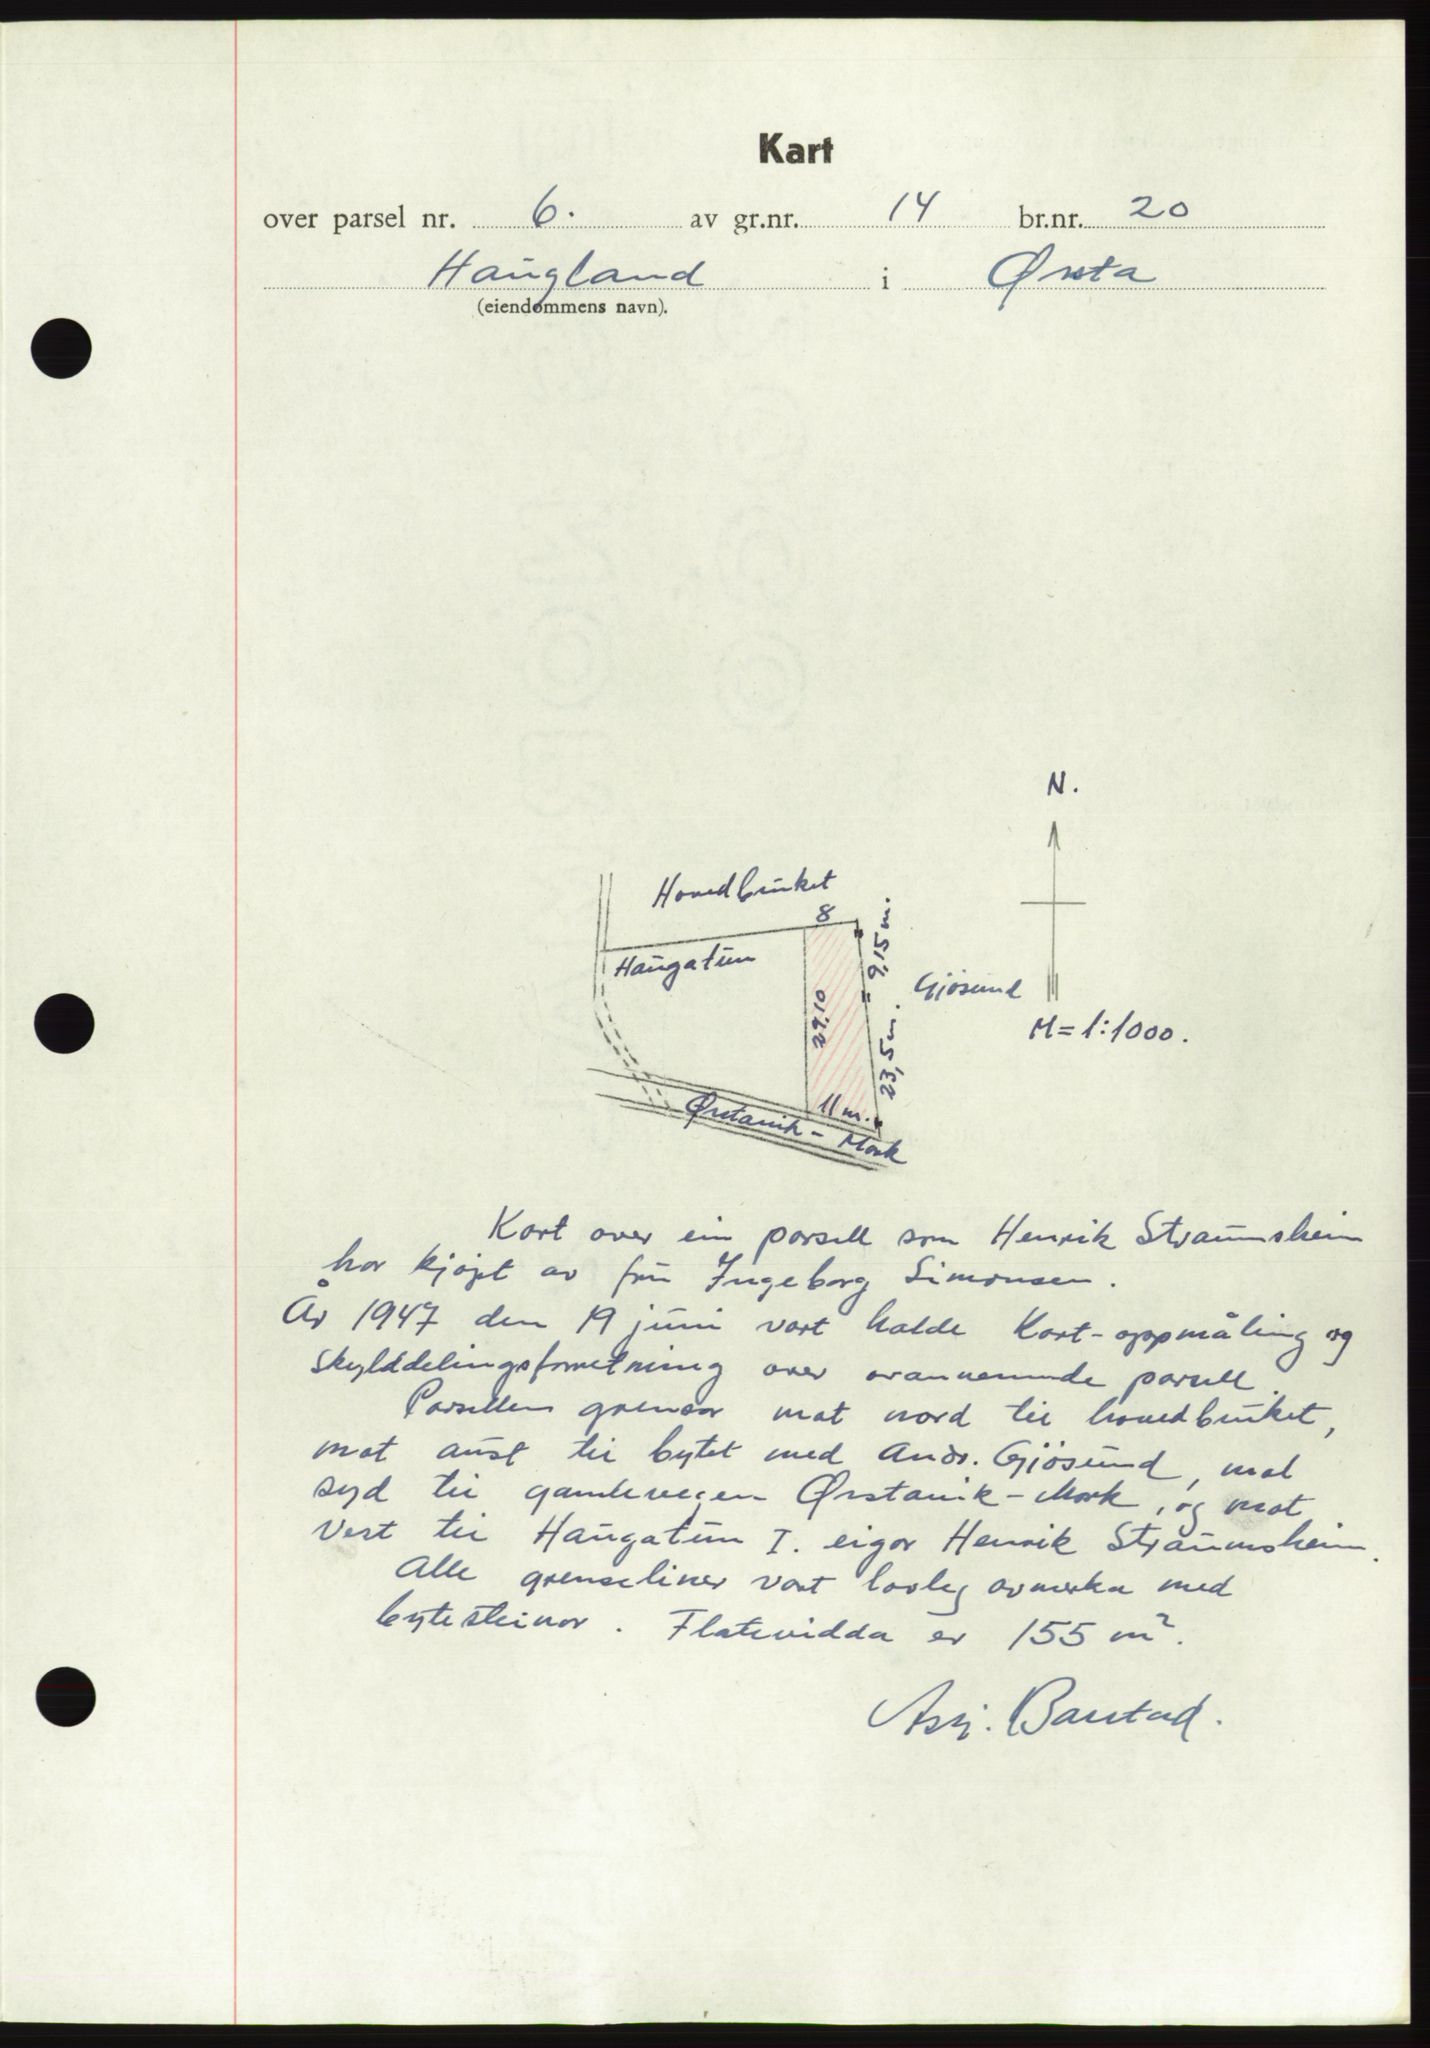 Kart
over parsel nr. 6. av gr.nr. 14 br.nr. 20
Haugland i Ørsta
(eiendommens navn).
N.
Hovedbruket
8
9,15 m.
Haugatun
Gjøsund
29.10
M = 1:1000.
23,5 m.
11 m.
Ørstavik - Mork
Kart over ein parsell som Henrik Straumsheim
har kjøpt av fru Ingeborg Simonsen.
År 1947 den 19 juni vart halde Kart-oppmåling og
skylddelingsforretning over ovannemnde parsell.
Parsellen grensar mot nord til hovedbruket,
mot aust til bytet med Andr. Gjøsund, mot
syd til gamlevegen Ørstavik - Mork, og mot
Vest til Haugatun I. eigar Henrik Straumsheim.
Alle grenseliner vart lovleg avmerka med
bytesteinar. Flatevidda er 155 m².
Asj. Barstad.